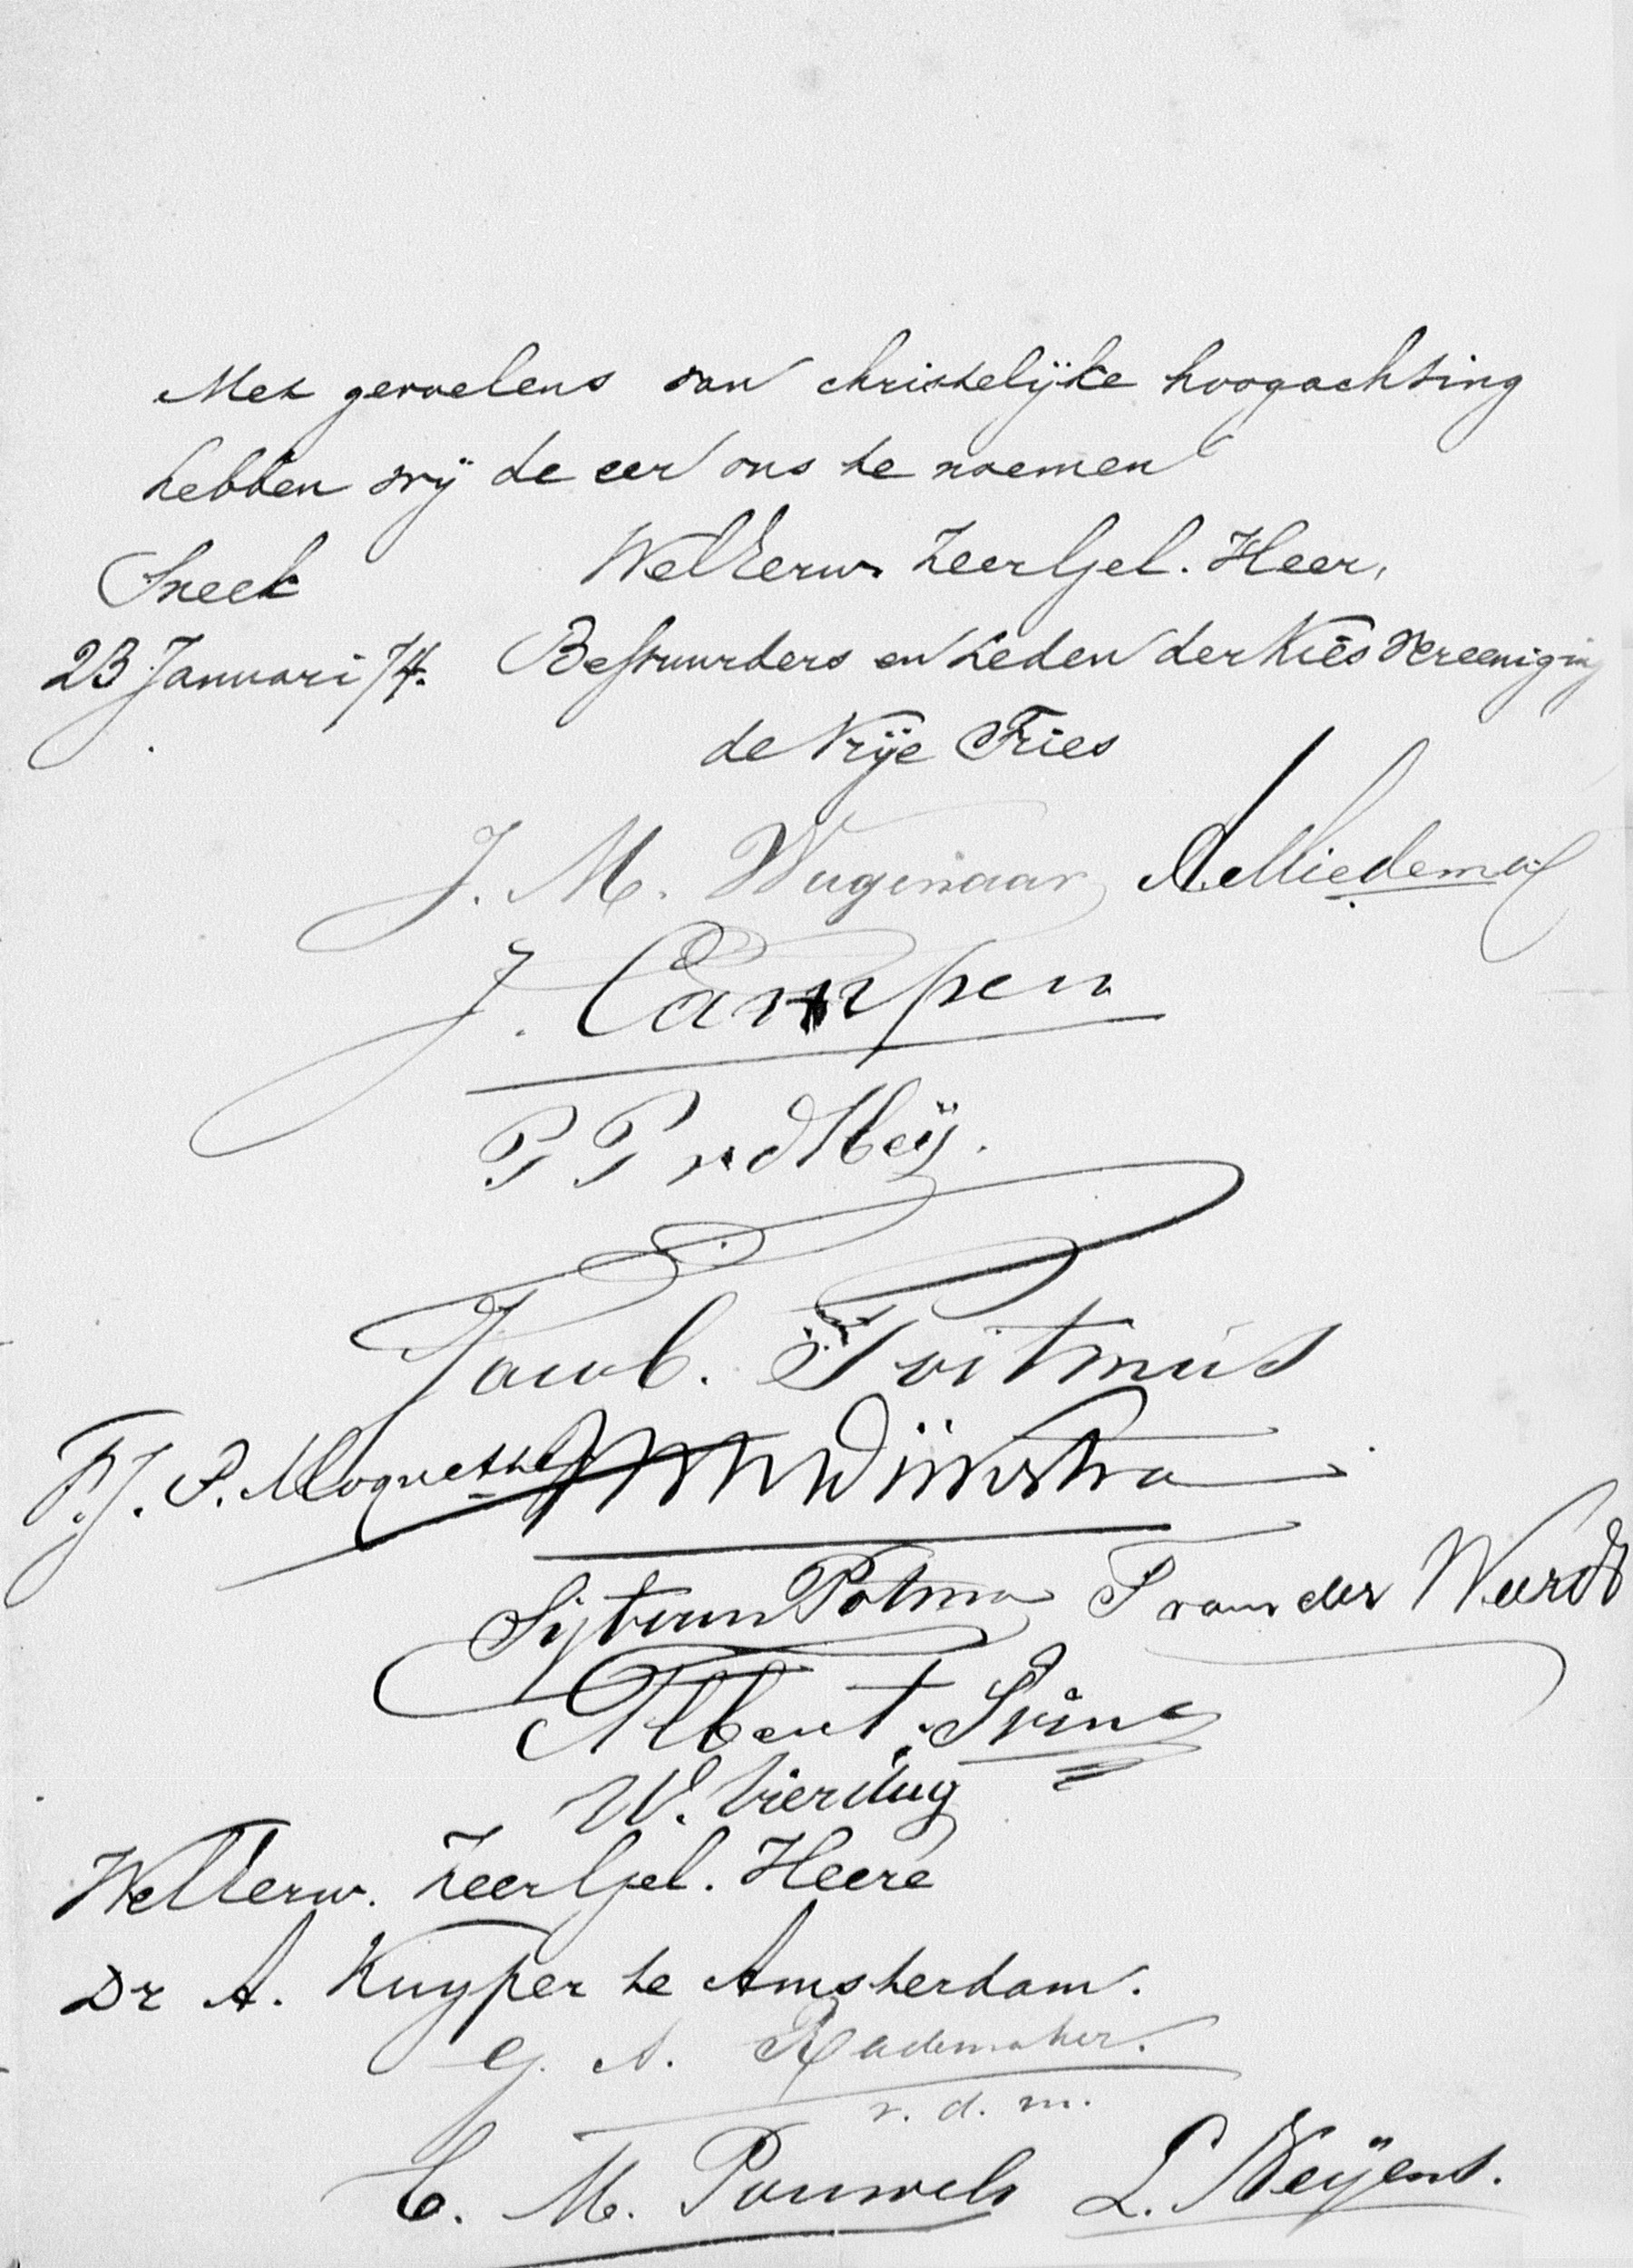 Met gevoelens van christelijke hoogachting
hebben wij de eer ons te noemen
Sneek WelEerw. ZeerGel. Heer,
23 Januari 74. Bestuurders en Leden der Kies Vereeniging
de Vrije Fries
J. M. Wagenaar A. Miedema
J. Campen
P P v d Meij.
Jacob.
F. J. P. Moquette
Sijbren Potma T van der Weerdt
Albert
W. Vierdag
WelEerw. ZeerGel. Heere
Dr A. Kuyper te Amsterdam.
G. A. Rademaker.
v. d. m.
C. M. Pouwels L. Neijens.